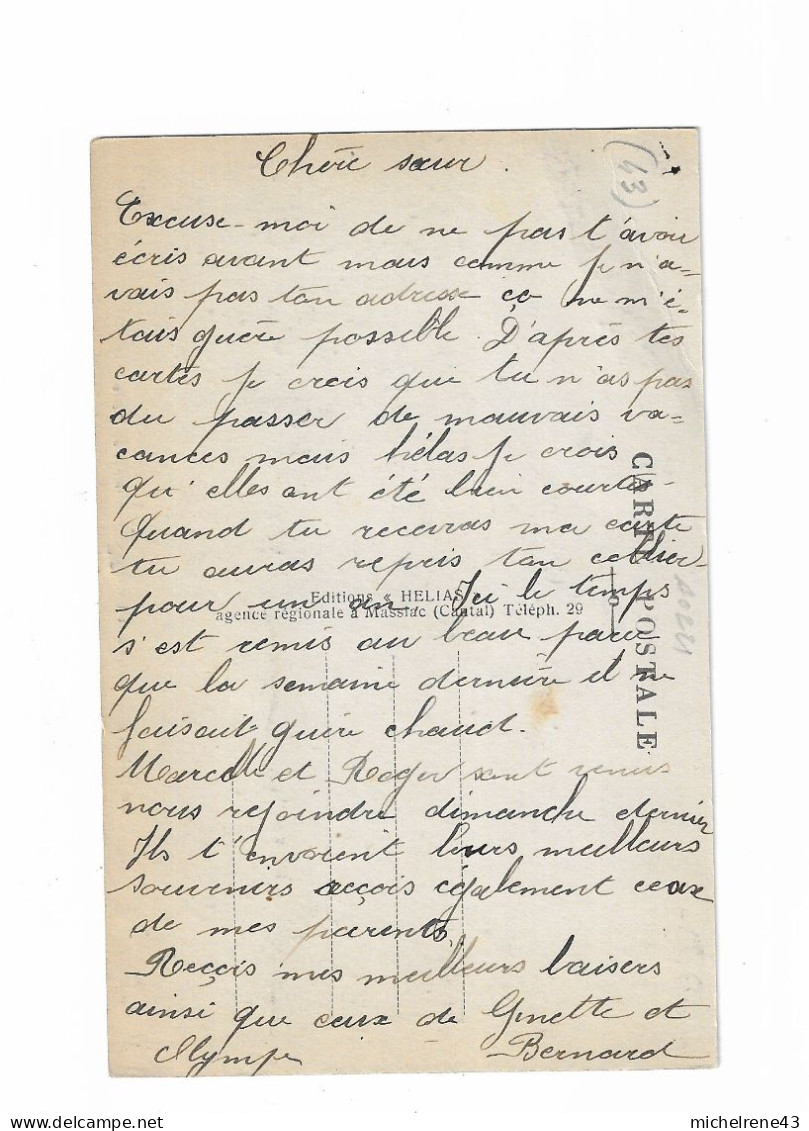 Chère sœur.
(43)
Excuse-moi de ne pas t'avoir
écris avant mais comme je n'a-
vais pas ton adresse ça ne m'é-
tais guère possible. D'après tes
cartes je crois que tu n'as pas
du passer de mauvais va-
cances mais hélas je crois
qu'elles ont été bien courtes.
Quand tu recevras ma carte
tu auras repris ton collier
pour un an. Ici le temps
s'est remis au beau parce
que la semaine dernière il ne
faisait guère chaud.
Marcelle et Roger sont venus
nous rejoindre dimanche dernier
Ils t'envoient leurs meilleurs
souvenirs reçois également ceux
de mes parents.
Reçois mes meilleurs baisers
ainsi que ceux de Ginette et
Olympe Bernard
Editions « HELIAS »
agence régionale à Massiac (Cantal) Téléph. 29
CARTE POSTALE
michelrene43